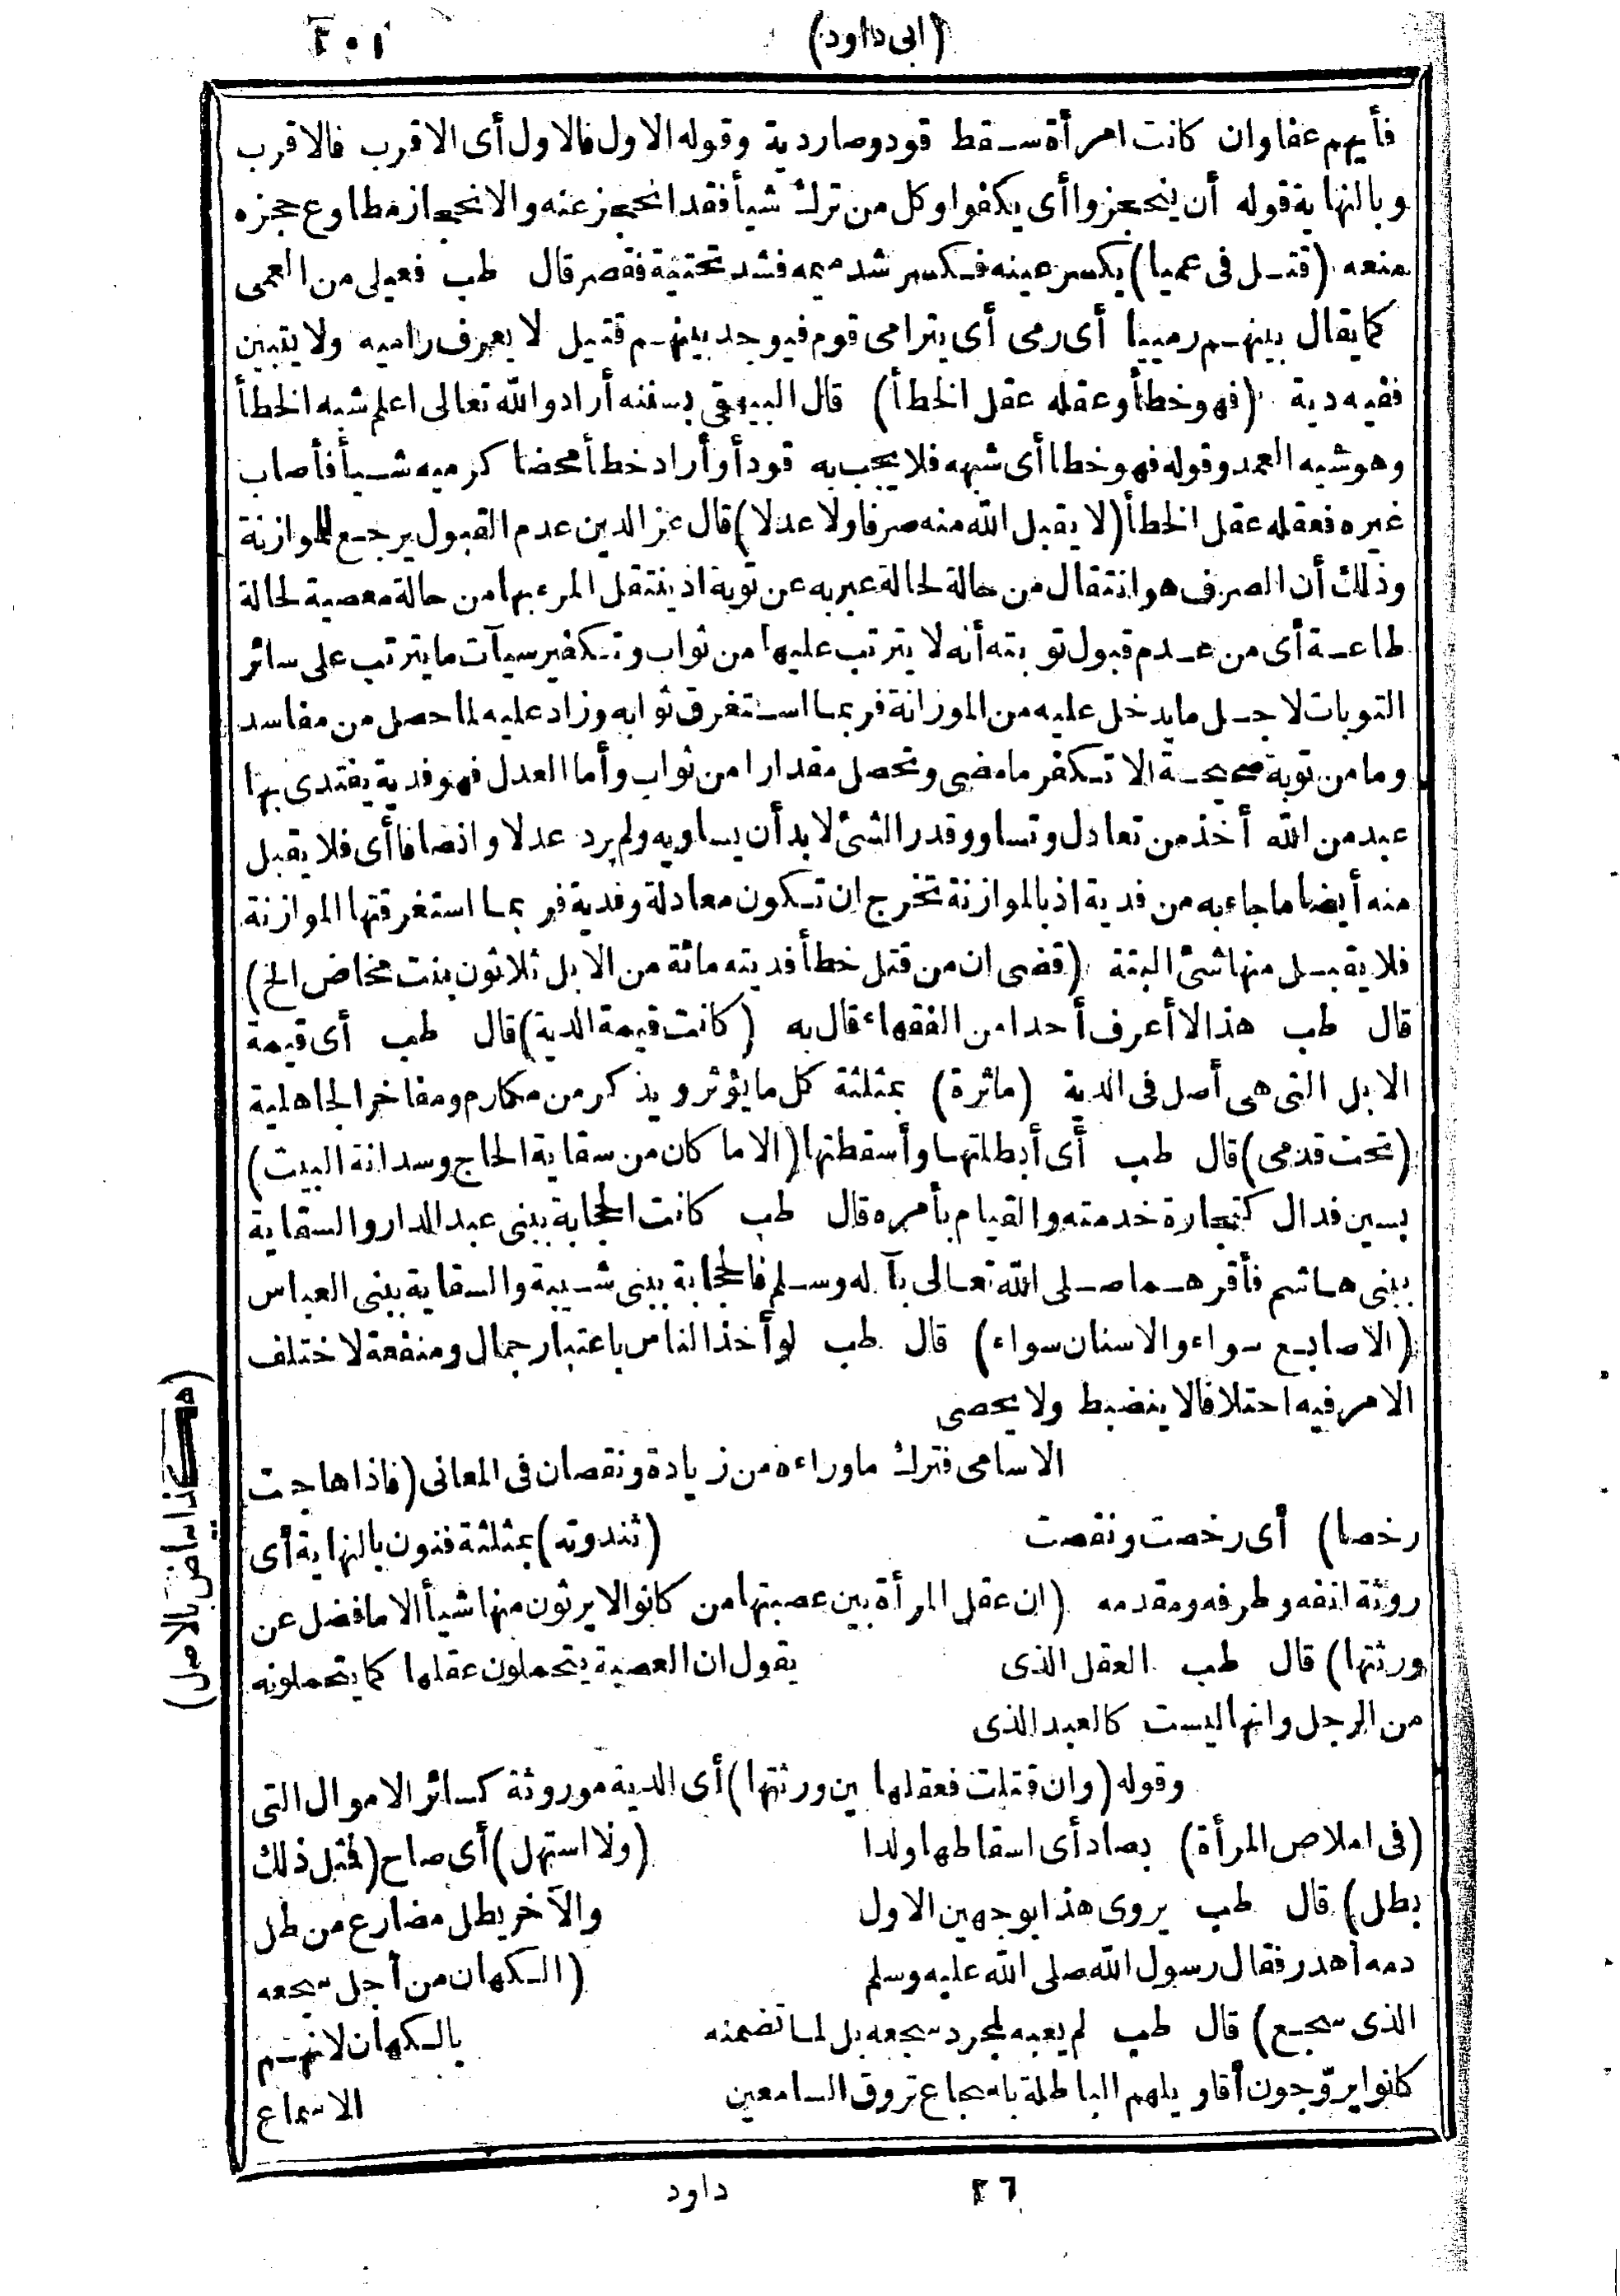 (ابى داود)
٢٠١
فأيهم عفا وان كانت امرأة سقط قود وصار دية وقوله الاول فالاول أى الاقرب فالاقرب
وبالنهاية قوله أن ينحجزوا أى يكفوا وكل من ترك شيأ فقد انحجز عنه والانحجاز مطاوع حجزه
منعه (قتل فى عميا) بكسر عينه فكسر شد ميمه فشد تحتية فقصر قال طب فعيلى من العمى
كما يقال بينهم رمييا أى رمى أى يترامى قوم فيوجد بينهم قتيل لا يعرف راميه ولا يتبين
ففيه دية (فهو خطأ وعقله عقل الخطأ) قال البيهقى بسننه أراد والله تعالى اعلم شبه الخطأ
وهو شبه العمد وقوله فهو خطا أى شبهه فلا يجب به قود أو أراد خطأ محضا كرميه شيأ فأصاب
غيره فعقله عقل الخطأ (لا يقبل الله منه صرفا ولا عدلا) قال عز الدين عدم القبول يرجع للموازنة
وذلك أن الصرف هو انتقال من حالة لحالة عبر به عن توبة اذ ينتقل المرء بها من حالة معصية لحالة
طاعة أى من عدم قبول توبته أنه لا يترتب عليها من ثواب وتكفير سيآت ما يترتب على سائر
التوبات لاجل ما يدخل عليه من الموزانة فربما استغرق ثوابه وزاد عليه لما حصل من مفاسد
وما من توبة صحيحة الا تكفر ما مضى وتحصل مقدارا من ثواب وأما العدل فهو فدية يفتدى بها
عبد من الله أخذ من تعادل وتساو وقدر الشئ لا بد أن يساويه ولم يرد عدلا وانصافا أى فلا يقبل
منه أيضا ما جاء به من فدية اذ بالموازنة تخرج ان تكون معادلة وفدية فربما استغرقتها الموازنة
فلا يقبل منها شئ البتة (قضى ان من قتل خطأ فديته مائة من الابل ثلاثون بنت مخاض الخ)
قال طب هذا لا أعرف أحدا من الفقهاء قال به (كانت قيمة الدية) قال طب أى قيمة
الابل التى هى أصل فى الدية (ماثرة) بمثلثة كل ما يؤثر ويذكر من مكارم ومفاخر الجاهلية
(تحت قدمى) قال طب أى أبطلتها وأسقطتها (الا ما كان من سقاية الحاج وسدانة البيت)
بسين فدال كتجارة خدمته والقيام بأمره قال طب كانت الحجابة ببنى عبد الدار والسقاية
ببنى هاشم فأقرهما صلى الله تعالى بآله وسلم فالحجابة ببنى شيبة والسقاية ببنى العباس
(الاصابع سواء والاسنان سواء) قال طب لو أخذ الناس باعتبار جمال ومنفعة لاختلف
الامر فيه احتلافا لا ينضبط ولا يحصى
الاسامى فترك ما وراءه من زيادة ونقصان فى المعانى (فاذا هاجت
رخصا) أى رخصت ونقصت (ثندوته) بمثلثة فنون بالنهاية أى
روثة انفه وطرفه ومقدمه (ان عقل المرأة بين عصبتها من كانوا لا يرثون منها شيأ الا ما فضل عن
ورثتها) قال طب العقل الذى يقول ان العصبة يتحملون عقلها كما يتحملونه
من الرجل وانها ليست كالعبد الذى
وقوله (وان قتلت فعقلها بين ورثتها) أى الدية موروثة كسائر الاموال التى
(فى املاص المرأة) بصاد أى اسقاطها ولدا (ولا استهل) أى صاح (فمثل ذلك
بطل) قال طب يروى هذا بوجهين الاول والآخر يطل مضارع من طل
دمه أهدر فقال رسول الله صلى الله عليه وسلم (الكهان من أجل سجعه
الذى سجع) قال طب لم يعبه لمجرد سجعه بل لما تضمنه بالكهان لانهم
كانوا يروّجون أقاويلهم الباطلة باسجاع تروق السامعين الاسماع
(هكذا بياض بالاصل)
٢٦ داود